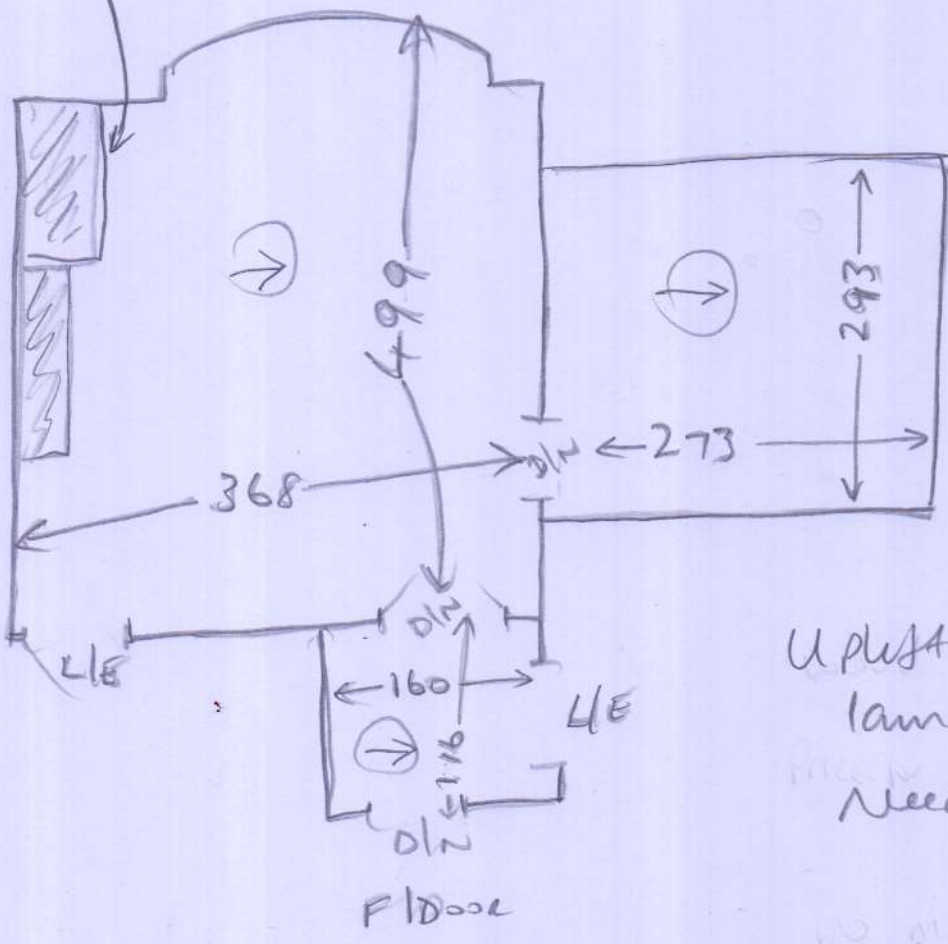 499
293
D/N
273
368
D/N
L/E
160
L/E
116
D/N
F/Door
Uplift
lam
Nee